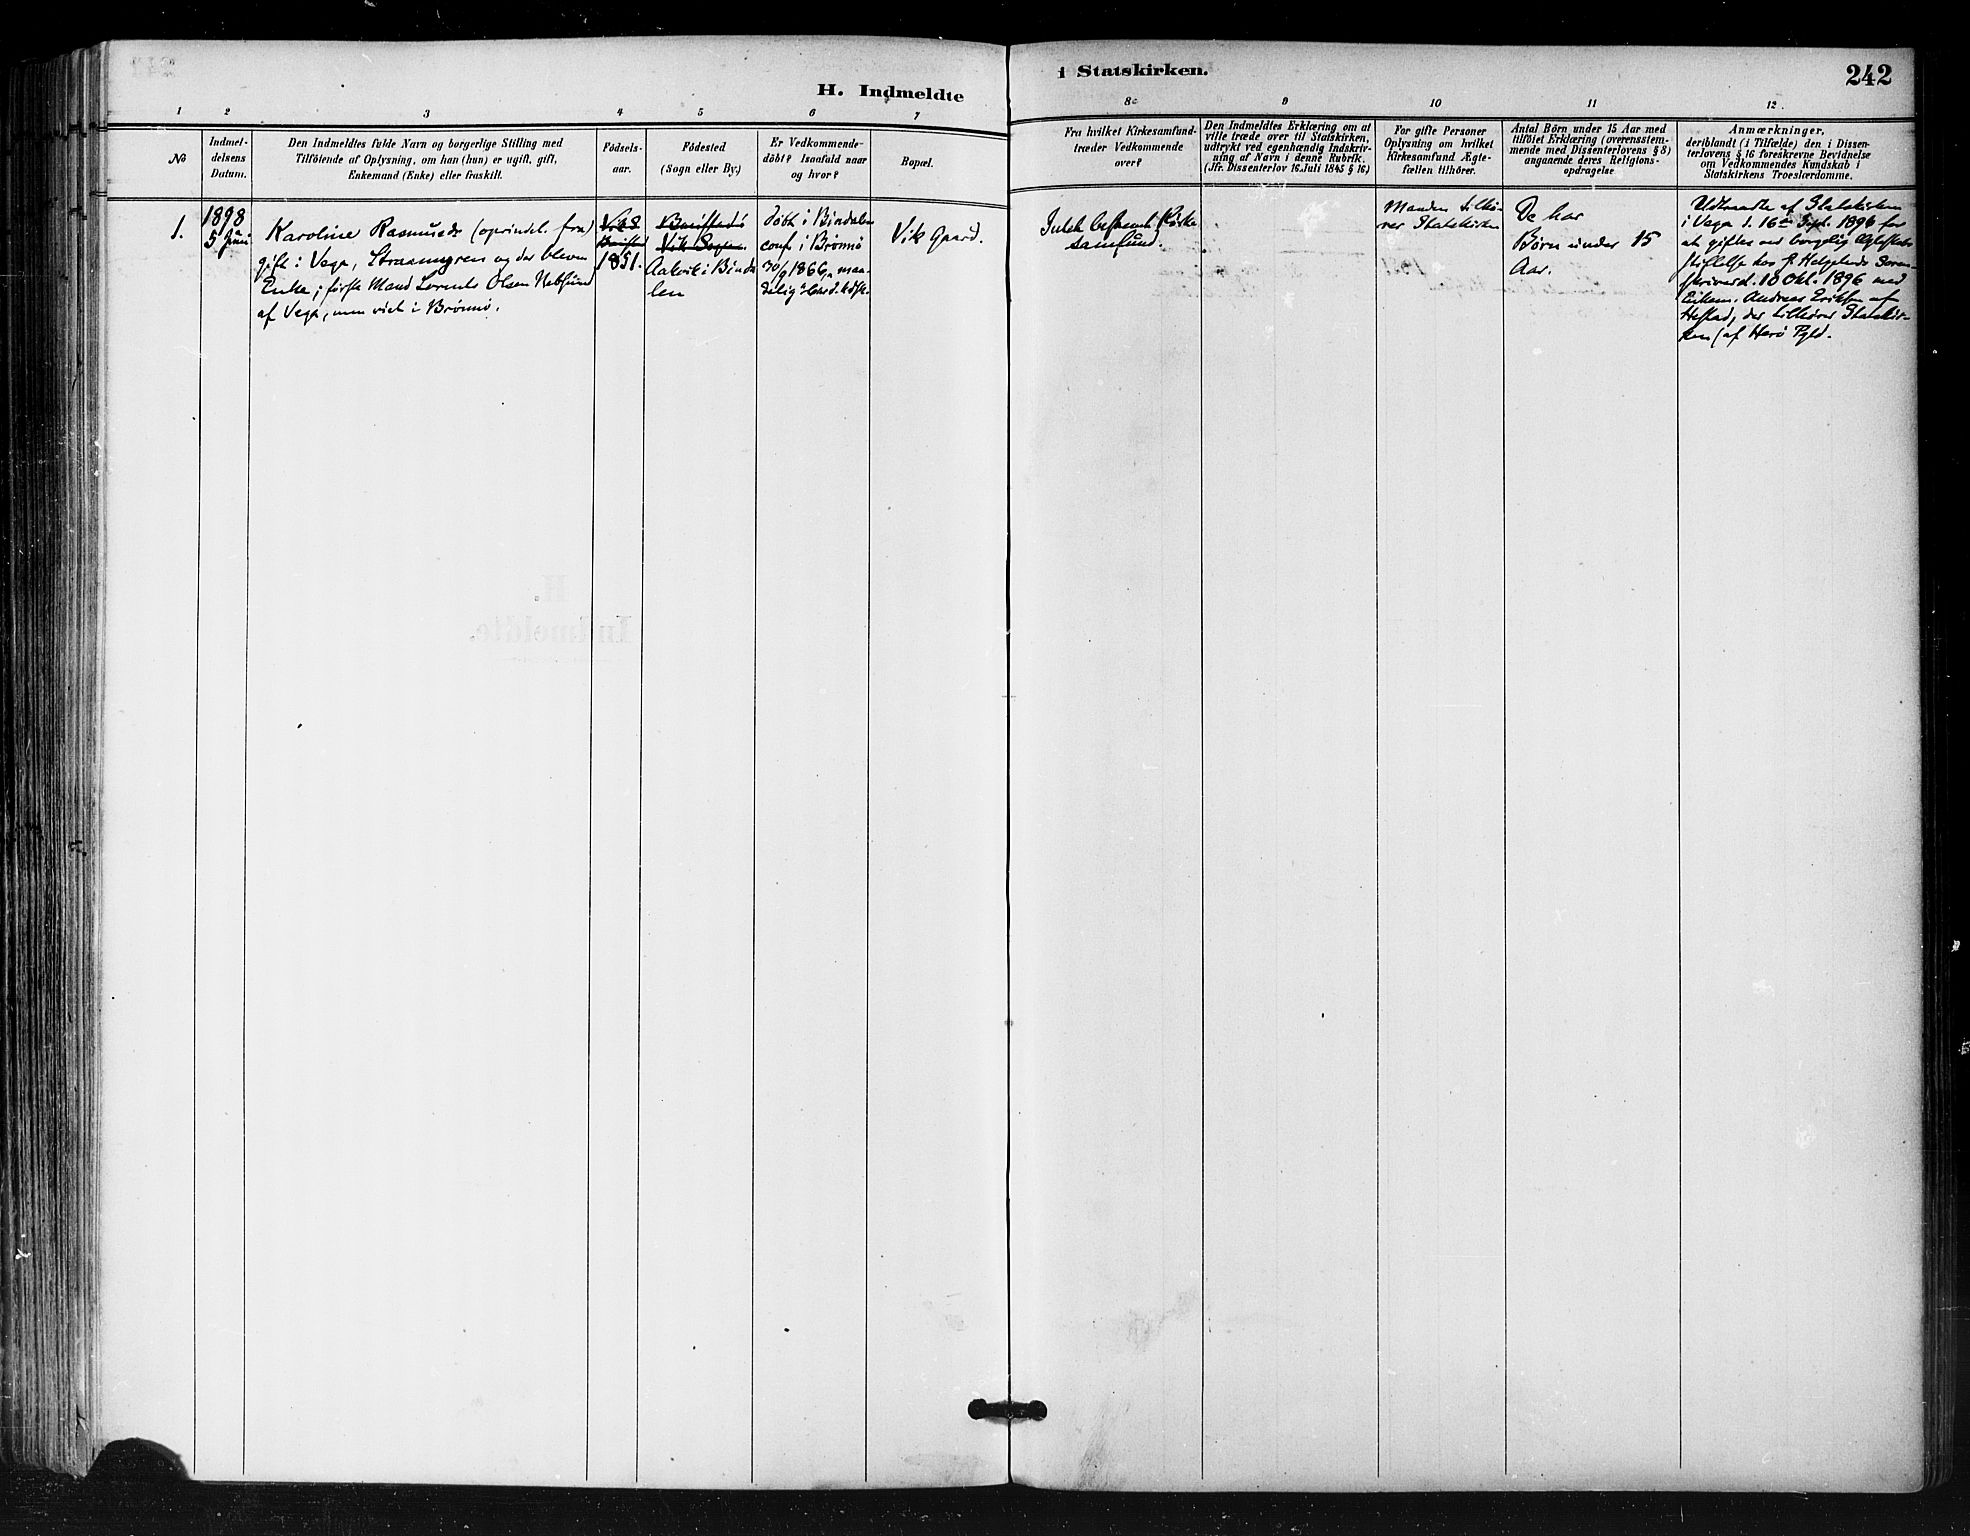 H. Indmeldte
i Statskirken.
242
1
2
3
4
5
6
7
8
9
10
11
12
No
Indmel-
delsens
Datum.
Den Indmeldtes fulde Navn og borgerlige Stilling med
Tilföiende af Oplysning, om han (hun) er ugift, gift,
Enkemand (Enke) eller fraskilt.
Födsels-
aar.
Födested
(Sogn eller By.)
Er Vedkommende
döbt? Isaafald naar
og hvor?
Bopæl.
Fra hvilket Kirkesamfund
træder Vedkommende
over?
Den Indmeldtes Erklæring om at
ville træde over til Statskirken,
udtrykt ved egenhændig Indskriv-
ning af Navn i denne Rubrik.
(Jfr. Dissenterlov 16 Juli 1845 § 16)
For gifte Personer
Oplysning om hvilket
Kirkesamfund Ægte-
fællen tilhörer.
Antal Börn under 15 Aar med
tilföiet Erklæring (overensstem-
mende med Dissenterlovens § 8)
angaaende deres Religions-
opdragelse
Anmærkninger,
deriblandt (i Tilfælde) den i Dissen-
terlovens § 16 foreskrevne Bevidnelse
om Vedkommendes Kundskab i
Statskirkens Troeslærdomme.
1.
1898
5 Juni
Karoline Rasmusd (oprindel. fra)
gift i Vega, og der bleven
Enke; første Mand Lorents Olsen
af Vega, men viet i Brønnø.
1851.
Vik Sogn.
Aakvik i Binda-
len
døbt i Bindalen
conf. i Brønnø
30/9 1866,
Vik Gaard.
Intet bestemt Kirke
samfund.
Manden tilhø-
rer Statskirken
De har
Børn under 15
Aar.
Udtraadte af Statskirken
i Vega d. 16de Sept. 1896 for
at giftes ved borgelig Ægteskabs
stiftelse hos S. Helgelands Soren-
skriver d. 18 Okt. 1896 med
Enkem. Andreas Eriksen af
Hestad, der tilhører Statskir-
ken (af Herø Pgld.